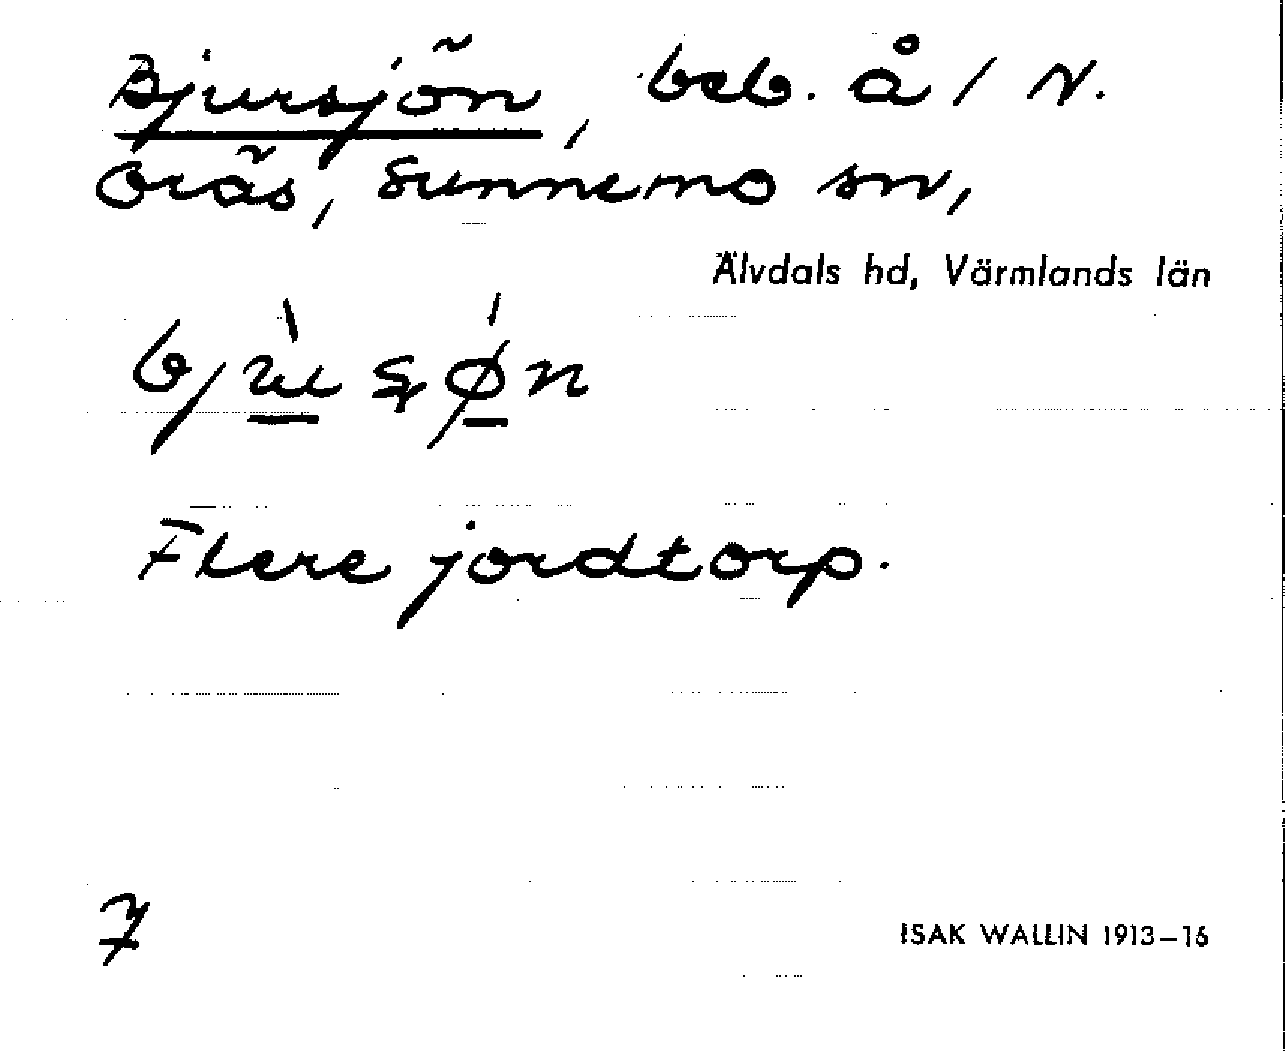 Bjursjön, beb. å 1 N.
Örås, Sunnemo sn,
Älvdals hd, Värmlands län
Flere jordtorp.
7
ISAK WALLIN 1913–16